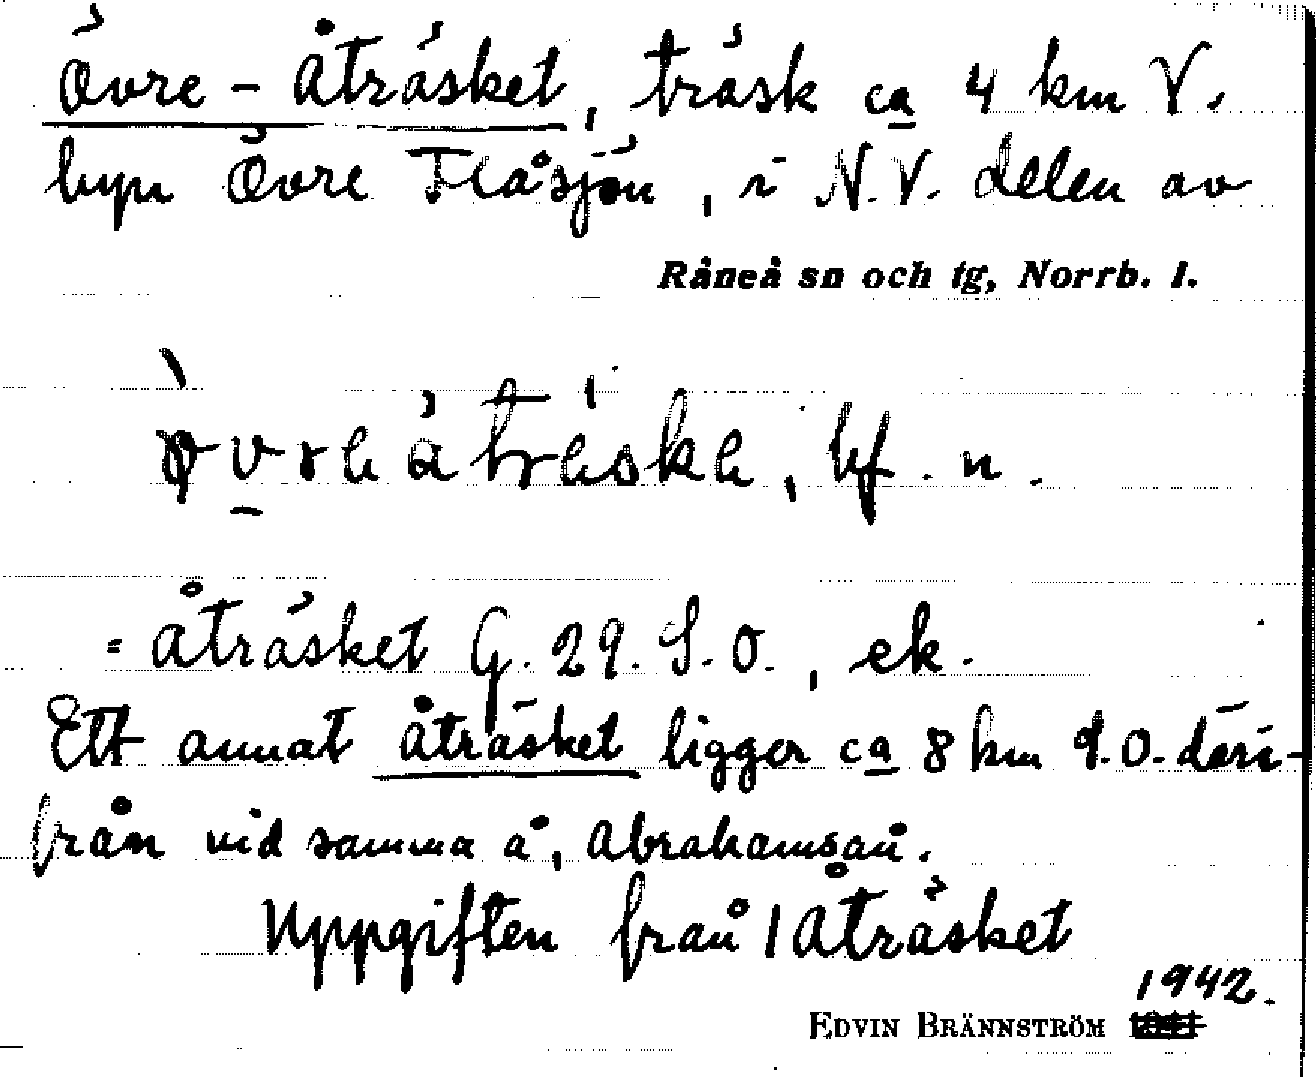 Övre-Åträsket, träsk ca 4 km V.
byn Övre Flåsjön, i N.V. delen av
Råneå sn och tg, Norrb. l.
bf. n.
= Åträsket G. 29. S.O., ek.
Ett annat Åträsket ligger ca 8 km S.O. däri-
från vid samma å, Abrahamsån.
Uppgiften från 1 Åträsket
1942.
EDVIN BRÄNNSTRÖM